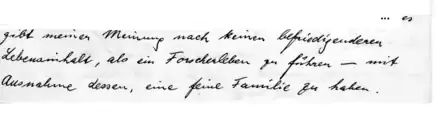 ... es
gibt meiner Meinung nach keinen befriedigenderen
Lebensinhalt, als ein Forscherleben zu führen — mit
Ausnahme dessen, eine feine Familie zu haben.